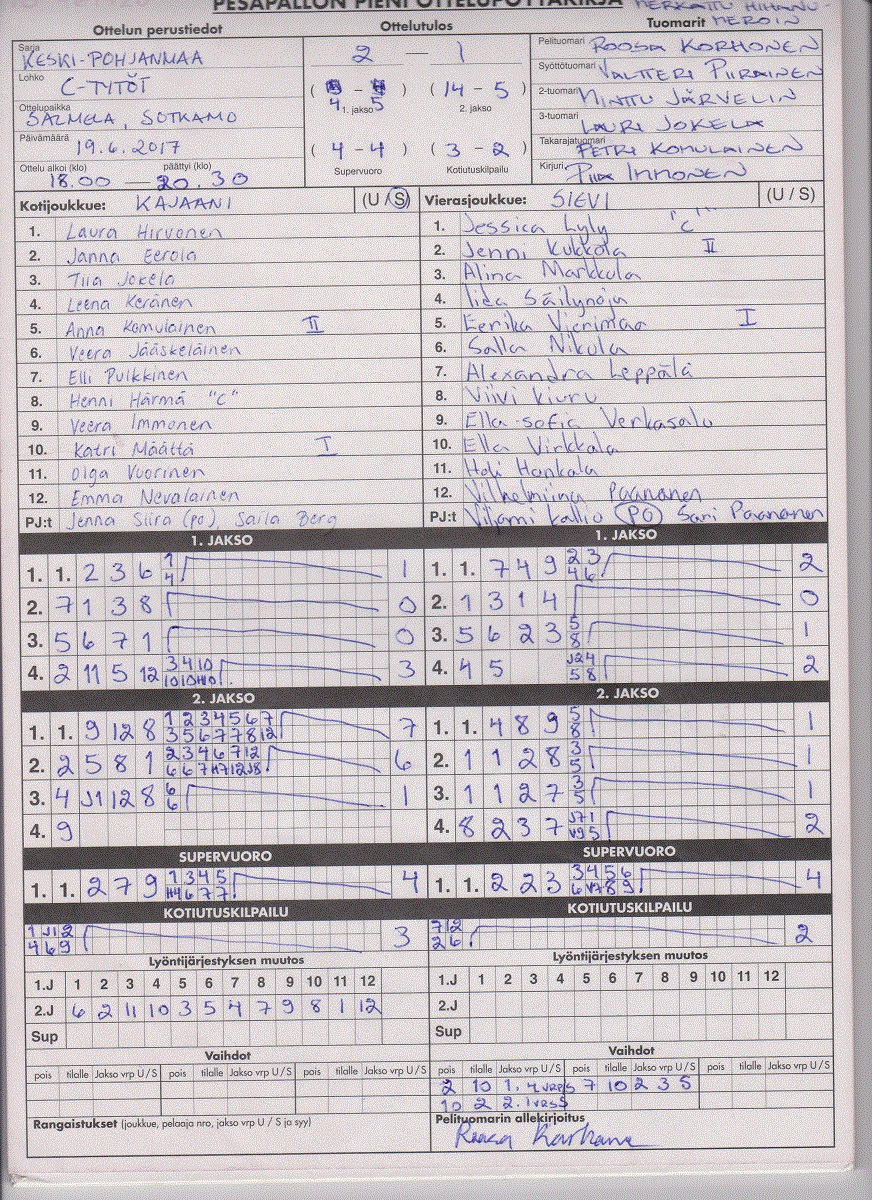 PESÄPALLON PIENI OTTELUPÖYTÄKIRJA
MERKATTU HIHANU-
MEROIN
Ottelun perustiedot Ottelutulos Tuomarit
Sarja KESKI-POHJANMAA
Lohko C-TYTÖT
Ottelupaikka SALMELA, SOTKAMO
Päivämäärä 19.6.2017
Ottelu alkoi (klo) päättyi (klo)
18.00 — 20.30
2 — 1
( - ) (14 - 5)
4 1. jakso 5 2. jakso
(4 - 4) (3 - 2)
Supervuoro Kotiutuskilpailu
Pelituomari ROOSA KORHONEN
Syöttötuomari VALTTERI PIIRAINEN
2-tuomari MINTTU JÄRVELIN
3-tuomari LAURI JOKELA
Takarajatuomari PETRI KOMULAINEN
Kirjuri PIIA IMMONEN
Kotijoukkue: KAJAANI (U / S)
1. Laura Hirvonen
2. Janna Eerola
3. Tiia Jokela
4. Leena Keränen
5. Anna Komulainen II
6. Veera Jääskeläinen
7. Elli Pulkkinen
8. Henni Härmä "C"
9. Veera Immonen
10. Katri Määttä I
11. Olga Vuorinen
12. Emma Nevalainen
PJ:t Jenna Siira (po), Saila Berg
Vierasjoukkue: SIEVI (U / S)
1. Jessica Lyly "C"
2. Jenni Kukkola II
3. Alina Markkula
4. Iida Säilynoja
5. Eerika Vierimaa I
6. Salla Nikula
7. Alexandra Leppälä
8. Viivi Kiuru
9. Ella-sofia Verkasalo
10. Ella Virkkala
11. Heli Hankala
12. Vilhelmiina Paananen
PJ:t Viljami Kallio (PO) Sari Paananen
1. JAKSO
1. 1. 2 3 6 1 1
4
2. 7 1 3 8 0
3. 5 6 7 1 0
4. 2 11 5 12 3 4 10 3
1. JAKSO
1. 1. 7 4 9 2 3 2
4 6
2. 1 3 1 4 0
3. 5 6 2 3 5 1
8
4. 4 5 J2 4 2
5 8
2. JAKSO
1. 1. 9 12 8 1 2 3 4 5 6 7 7
3 5 6 7 7 8 12
2. 2 5 8 1 2 3 4 6 7 12 6
3. 4 J1 12 8 6 1
6
4. 9
2. JAKSO
1. 1. 4 8 9 5 1
8
2. 1 1 2 8 3 1
5
3. 1 1 2 7 3 1
5
4. 8 2 3 7 J7 1 2
SUPERVUORO
1. 1. 2 7 9 1 3 4 5 4
SUPERVUORO
1. 1. 2 2 3 3 4 5 6 4
KOTIUTUSKILPAILU
1 J1 2 3
4 6 9
KOTIUTUSKILPAILU
7 12 2
2 6
Lyöntijärjestyksen muutos
1.J 1 2 3 4 5 6 7 8 9 10 11 12
2.J 6 2 11 10 3 5 4 7 9 8 1 12
Sup
Lyöntijärjestyksen muutos
1.J 1 2 3 4 5 6 7 8 9 10 11 12
2.J
Sup
Vaihdot
pois tilalle Jakso vrp U / S pois tilalle Jakso vrp U / S pois tilalle Jakso vrp U / S
Vaihdot
pois tilalle Jakso vrp U / S pois tilalle Jakso vrp U / S pois tilalle Jakso vrp U / S
2 10 1. 4 vrp S 7 10 2 3 S
10 2 2. 1 vrs S
Rangaistukset (joukkue, pelaaja nro, jakso vrp U / S ja syy)
Pelituomarin allekirjoitus
Roosa Korhonen